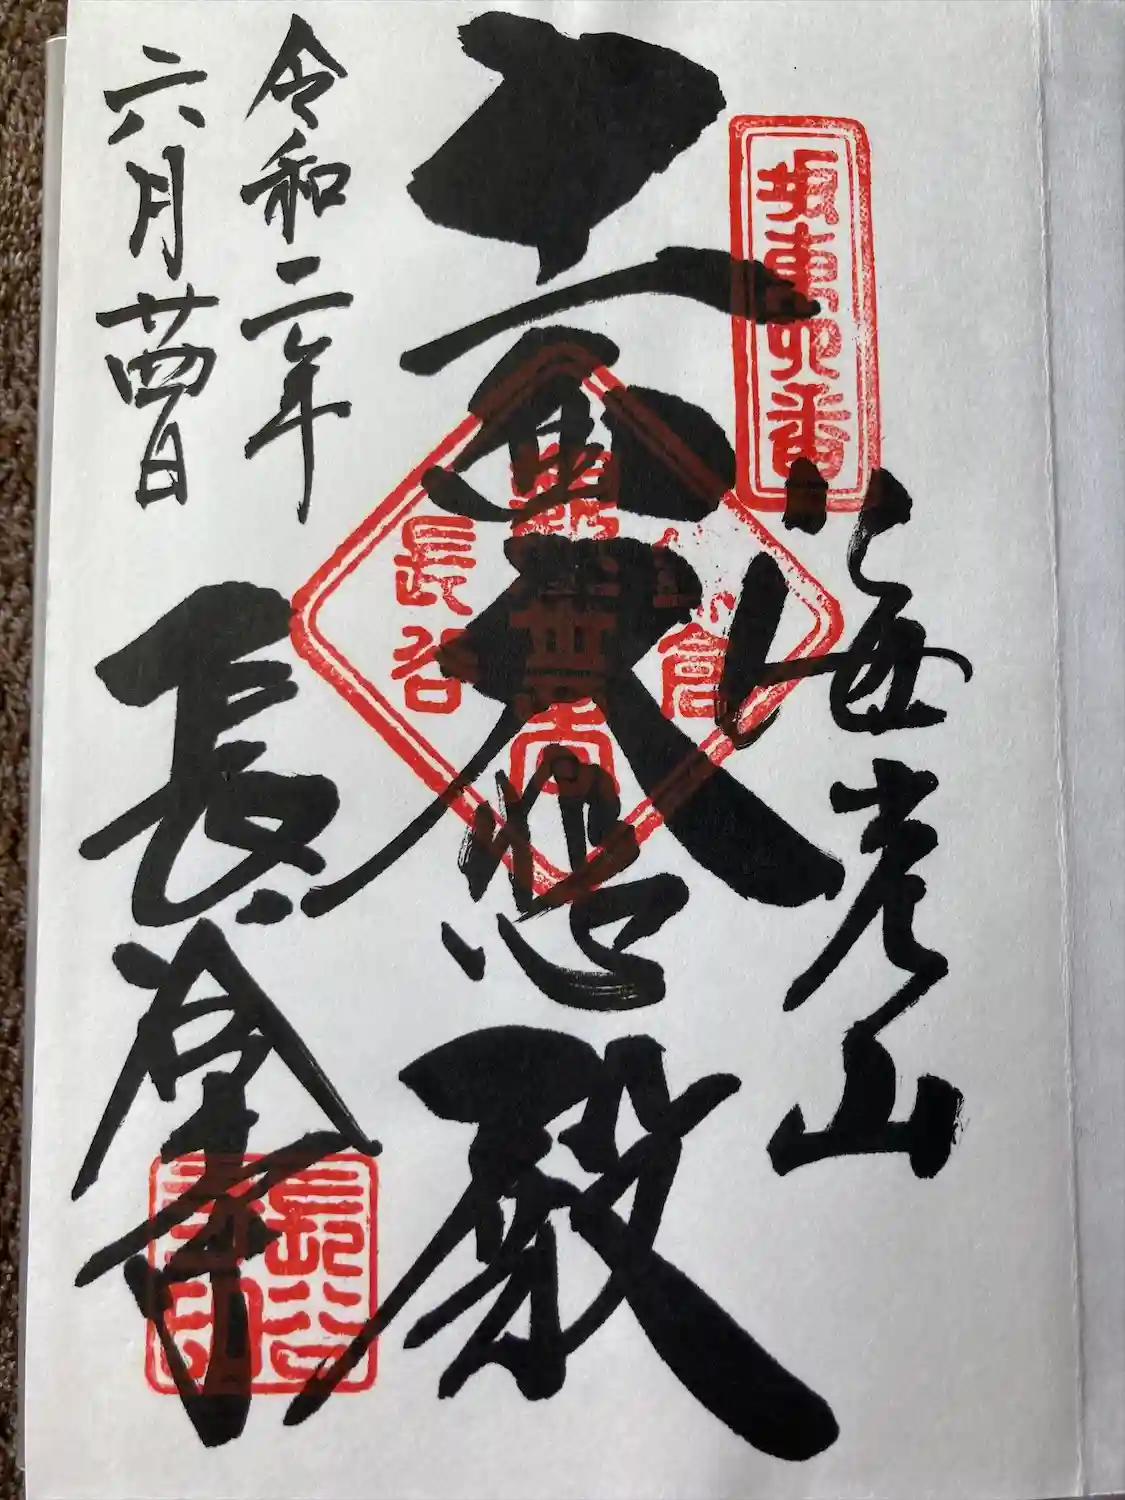 坂東四番
海光山
十一面大悲殿
鎌倉
長谷
令和二年
六月廿四日
長谷寺
長谷寺印